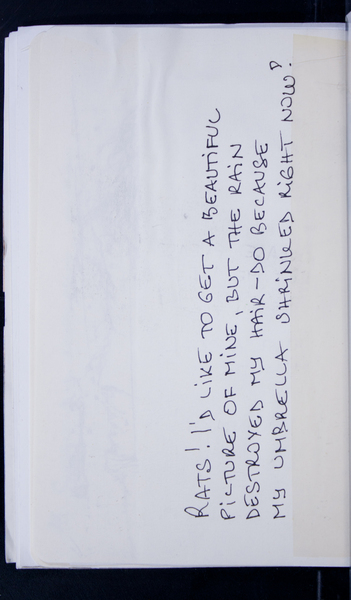 RATS! I'D LIKE TO GET A BEAUTIFUL
PICTURE OF MINE, BUT THE RAIN
DESTROYED MY HAIR-DO BECAUSE
MY UMBRELLA SHRINKED RIGHT NOW!